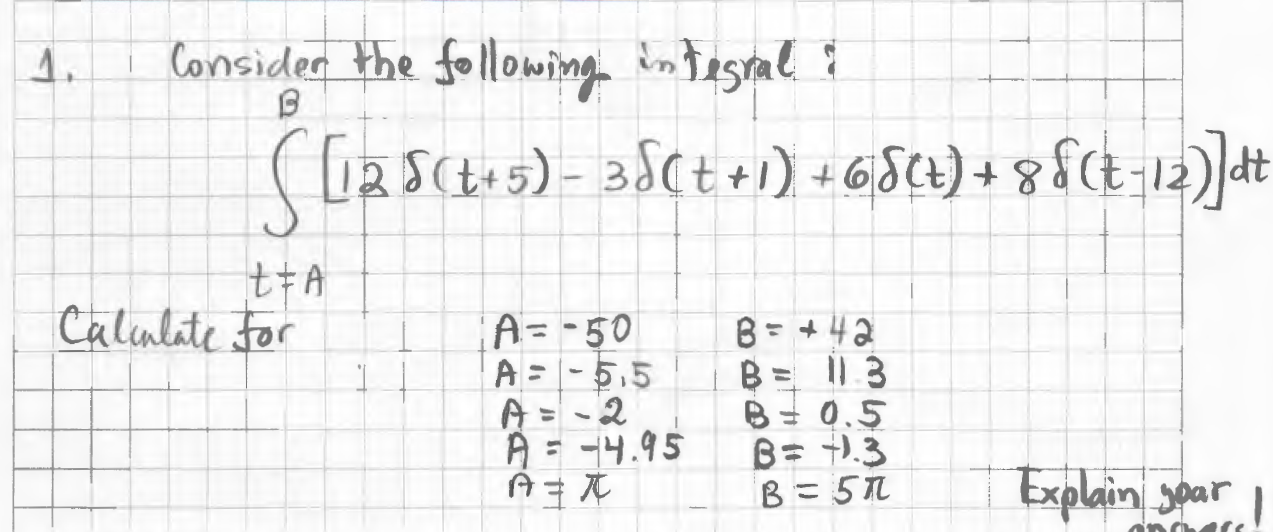 1. Consider the following integral :
B
∫ [12 δ(t+5) - 3δ(t+1) + 6δ(t) + 8δ(t-12)]dt
t=A
Calculate for
A = -50 B = +42
A = -5.5 B = 11.3
A = -2 B = 0.5
A = -4.95 B = -1.3
A = π B = 5π
Explain your
answers!